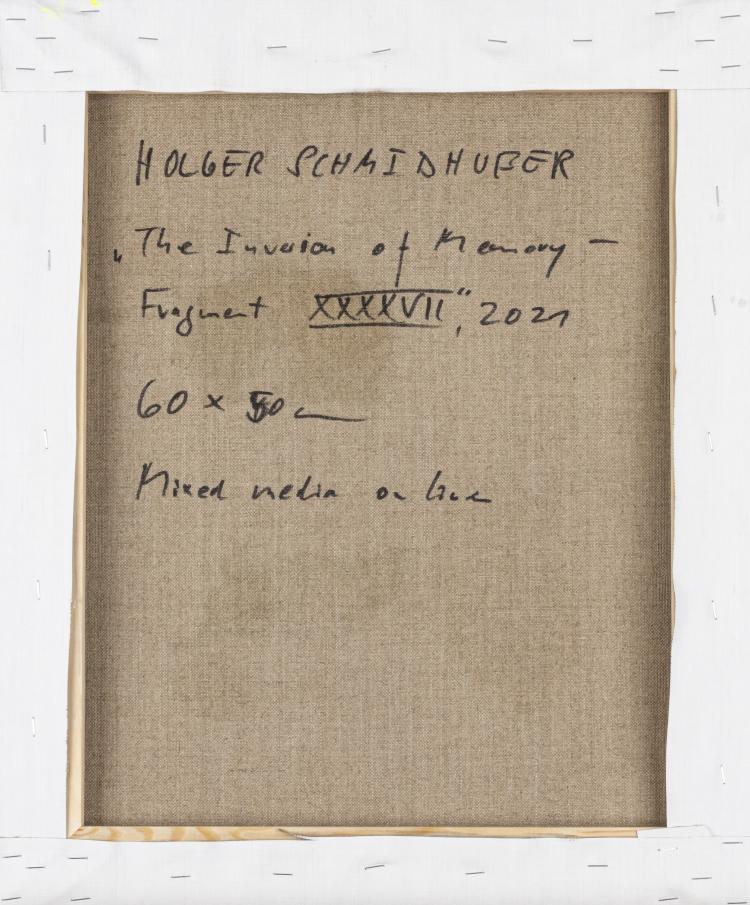 HOLGER SCHMIDHUBER
„The Invasion of Memory –
Fragment XXXXVII“, 2021
60 x 50 cm
Mixed media on line